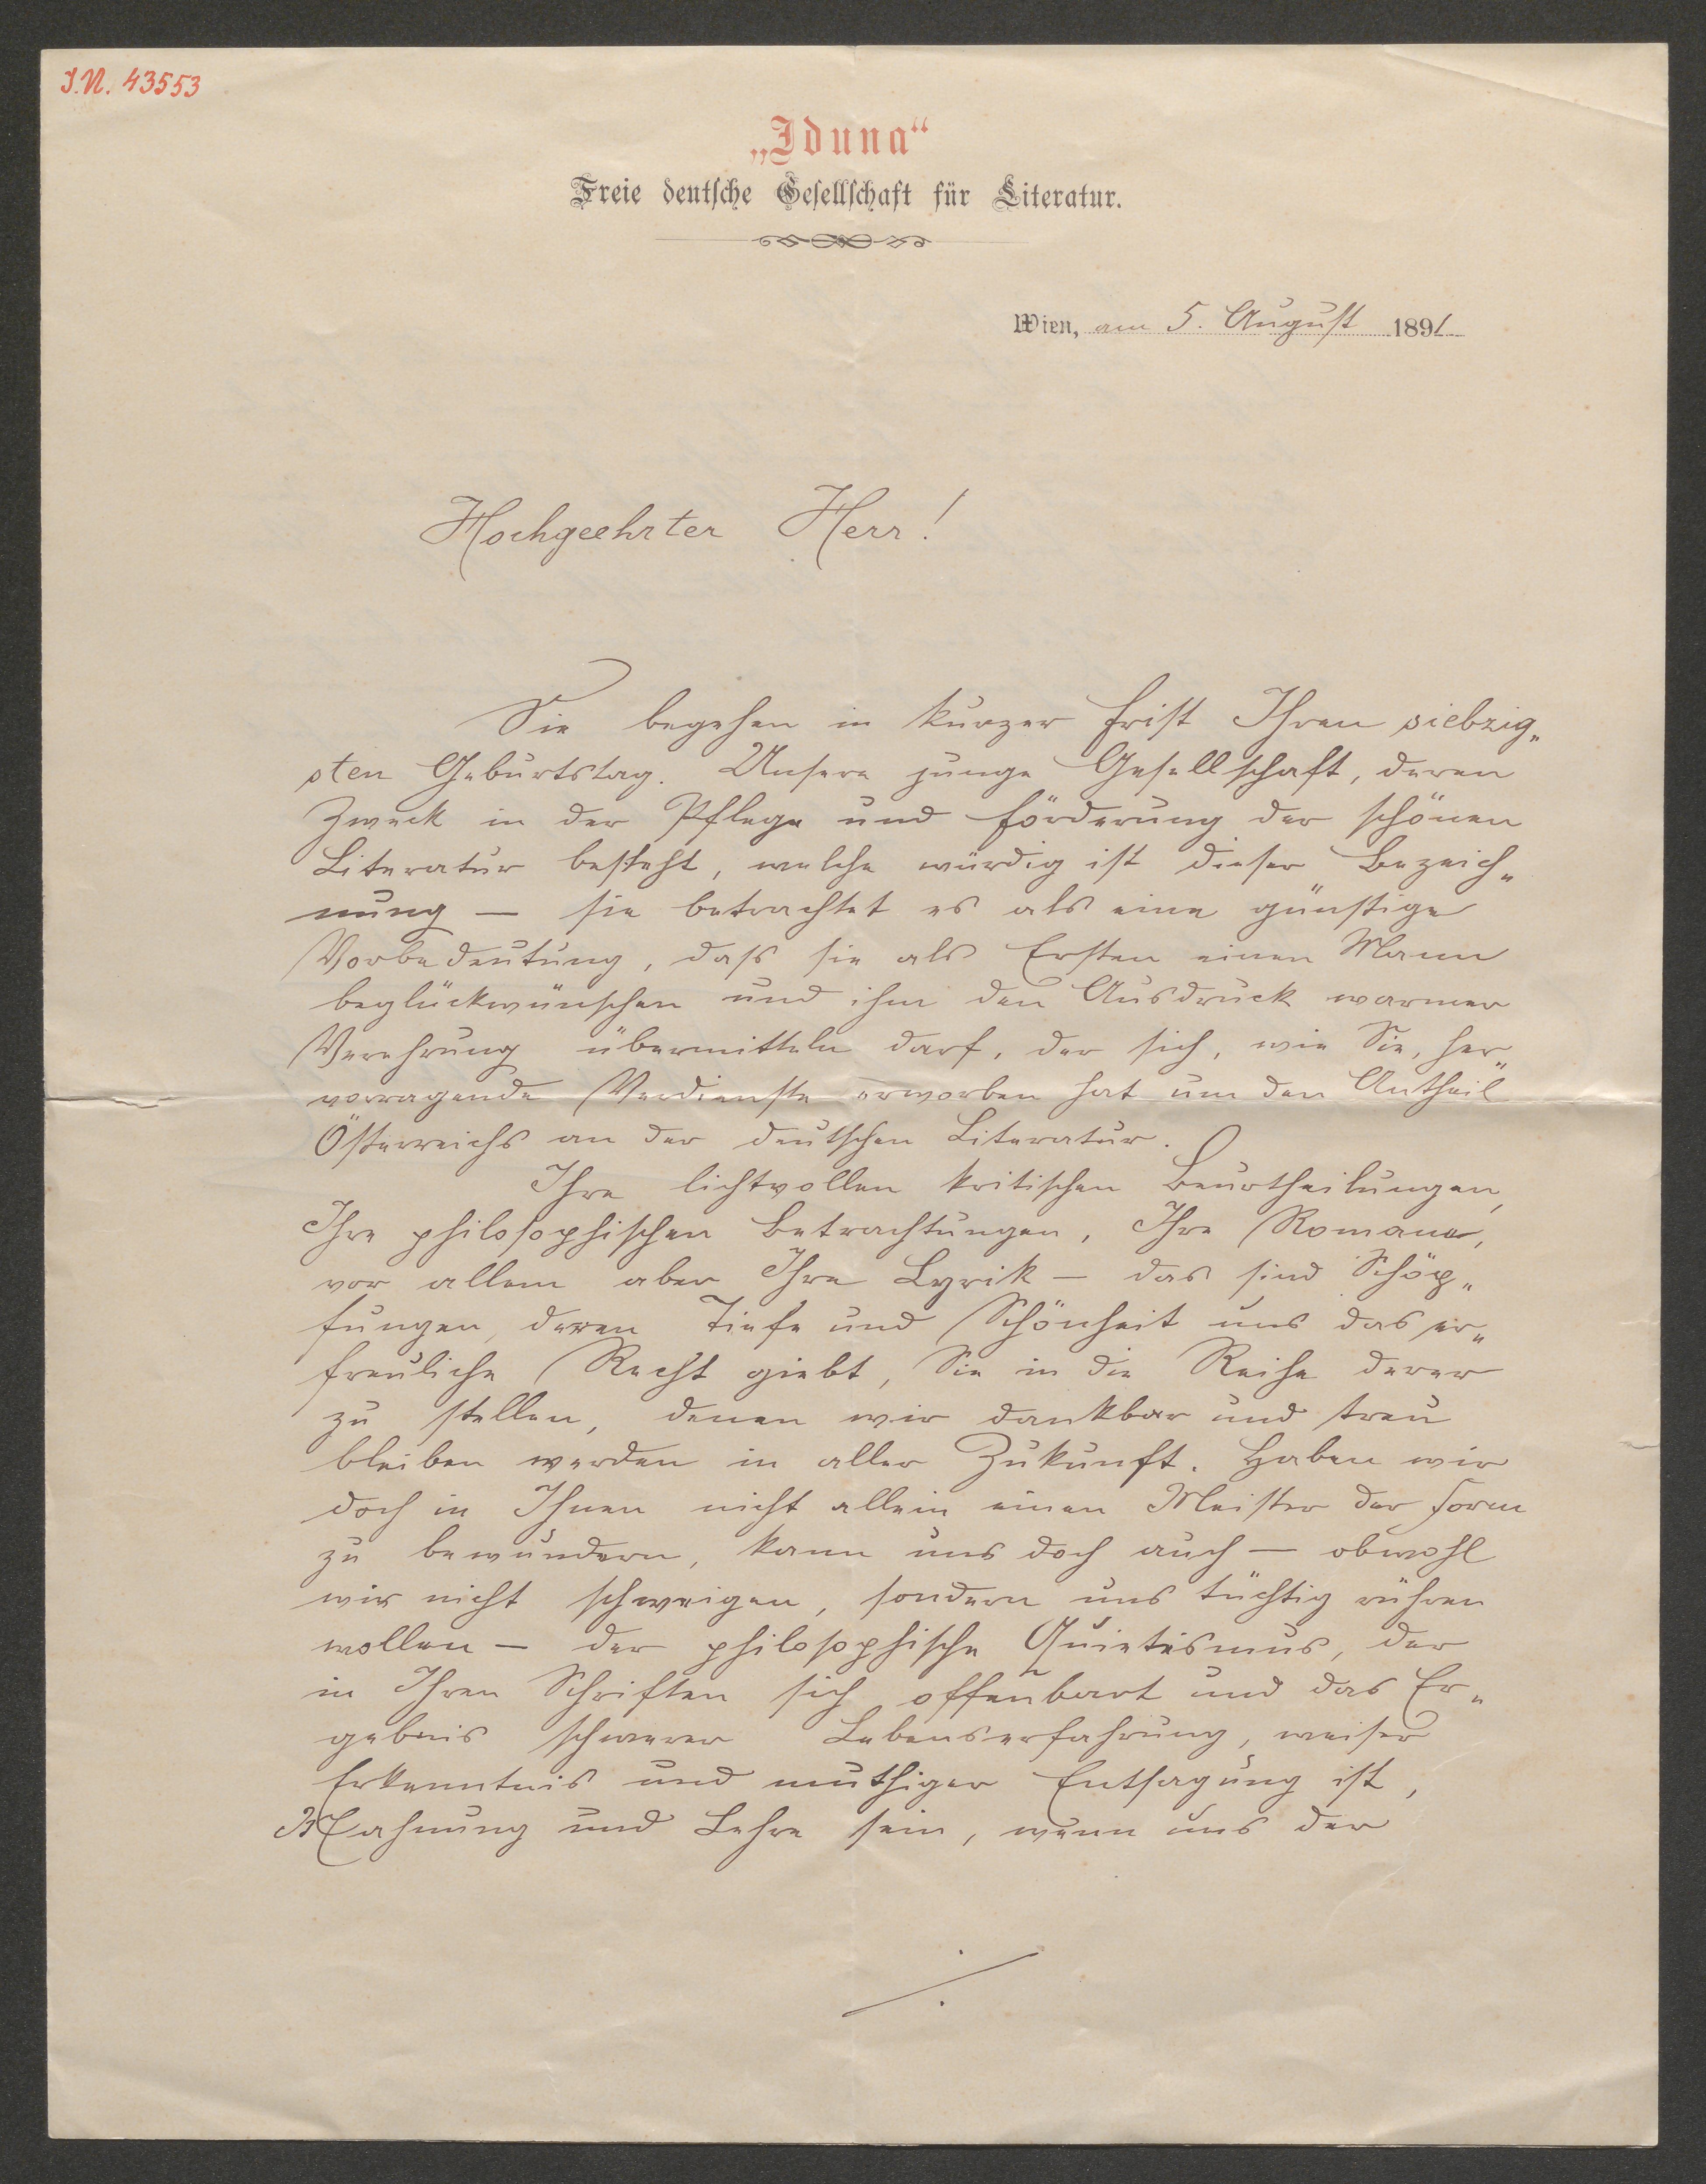 I.N. 43553
„Iduna“
Freie deutsche Gesellschaft für Literatur.
Wien, am 5. August 1891
Hochgeehrter Herr!
Sie begehen in kurzer Frist Ihren siebzig„
sten Geburtstag. Unsere junge Gesellschaft, deren
Zweck in der Pflege und Förderung der schönen
Literatur besteht, welche würdig ist dieser Bezeich„
nung — sie betrachtet es als eine günstige
Vorbedeutung, daß sie als Ersten einen Mann
beglückwünschen und ihm den Ausdruck warmer
Verehrung übermitteln darf, der sich, wie Sie, her„
vorragende Verdienste erworben hat um den Antheil
Österreichs an der deutschen Literatur.
Ihre lichtvollen kritischen Beurtheilungen,
Ihre philosophischen Betrachtungen, Ihre Romane,
vor allem aber Ihre Lyrik — das sind Schöp„
fungen, deren Tiefe und Schönheit uns das er„
freuliche Recht giebt, Sie in die Reihe derer
zu stellen, denen wir dankbar und treu
bleiben werden in aller Zukunft. Haben wir
doch in Ihnen nicht allein einen Meister der Form
zu bewundern, kann uns doch auch — obwohl
wir nicht schweigen, sondern uns tüchtig rühren
wollen — der philosophische Quietismus, der
in Ihren Schriften sich offenbart und das Er„
gebnis schwerer Lebenserfahrung, weiser
Erkenntnis und muthiger Entsagung ist,
Mahnung und Lehre sein, wenn uns der
./.